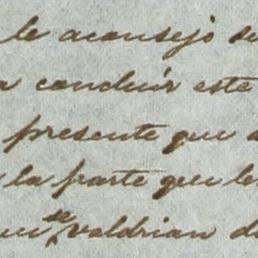 le aconsejo su
a concluir este
presente que a
la parte que le
que se valdrian d